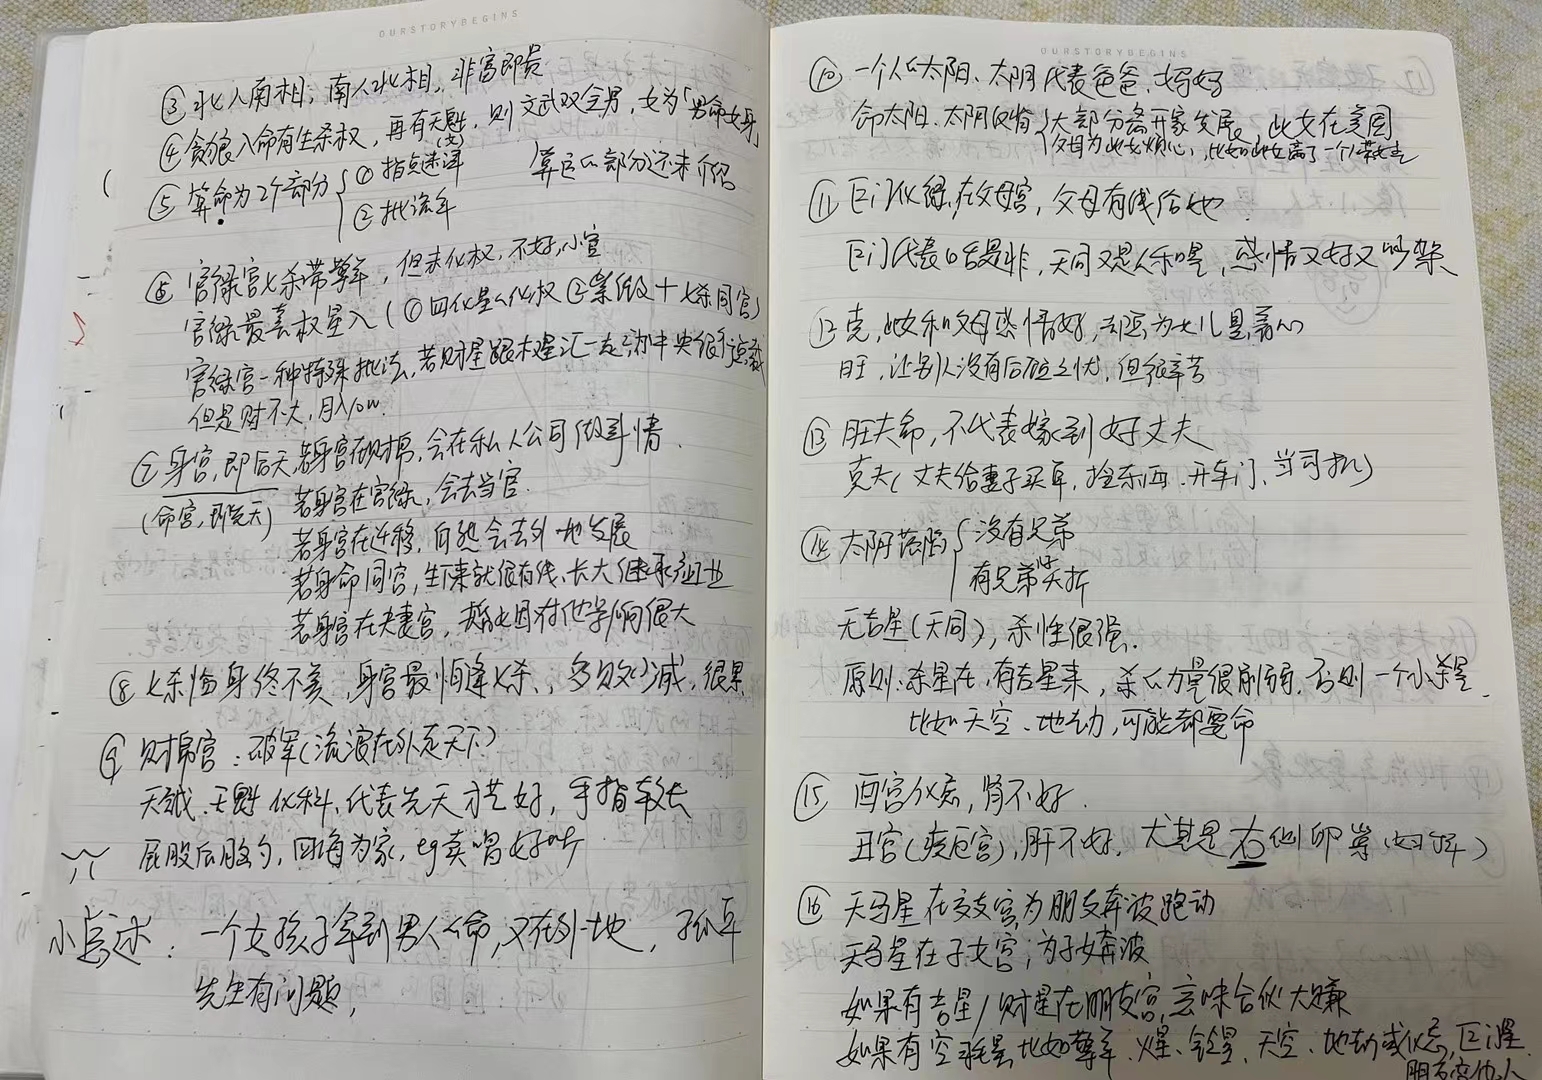 OURSTORYBEGINS
③ 北人南相，南人北相，非富即贵
④ 贪狼入命有生杀权，再有天魁，则文武双全男，女为「男命女身」
⑤ 算命为2个部分 ① 指点迷津 算官的部分还未介绍
② 批流年
⑥ 官禄宫七杀带擎羊，但未化权，不好，小官
官禄最喜权星入（①四化星的化权 ②紫微+七杀同宫）
官禄宫一种特殊批法，若财星跟木星汇一起
但是财不大，月入10w.
⑦ 身宫，即后天 若身宫在财帛，会在私人公司做事情.
(命宫，即先天) 若身宫在官禄，会去当官.
若身宫在迁移，自然会去外地发展
若身命同宫，生下来就很有钱、长大继承产业
若身宫在夫妻宫，婚姻对他影响很大
⑧ 七杀临身终不美，身宫最怕逢七杀，多败少减，很累
⑨ 财帛宫：破军(流浪在外走天下)
天钺、天魁 化科，代表先天才艺好，手指较长
屁股后股勺，四海为家，eg卖唱好听
小总述：一个女孩子拿到男人的命，又在外地，孤单
先生有问题，
OURSTORYBEGINS
⑩ 一个人的太阳、太阴代表爸爸、妈妈
命太阳、太阴 大部分离开家发展，此女在美国
父母为此女烦心，
⑪ 巨门化禄，在父母宫，父母有钱给她.
巨门代表口舌是非，天同又是人和星，感情又好又吵架
⑫ 克，她女和父母感情好，
旺，让别人没有后顾之忧，但很辛苦
⑬ 旺夫命，不代表嫁到好丈夫
克夫(丈夫给妻子买单，拎东西、开车门、当司机)
⑭ 太阴落陷 没有兄弟
有兄弟 夭折
无吉星(天同)，杀性很强.
原则：杀星在，有吉星来，杀的力量很削弱，否则一个小杀星.
比如天空、地劫，可能都要命
⑮ 酉宫化忌，肾不好.
丑宫(疾厄宫)，肝不好，尤其是右侧卵巢
⑯ 天马星在交友宫，为朋友奔波跑动
天马星在子女宫；为子女奔波
如果有吉星/财星在朋友宫，意味合伙大赚
如果有空耗星 比如擎羊、火星、铃星、天空、地劫或化忌，巨门星